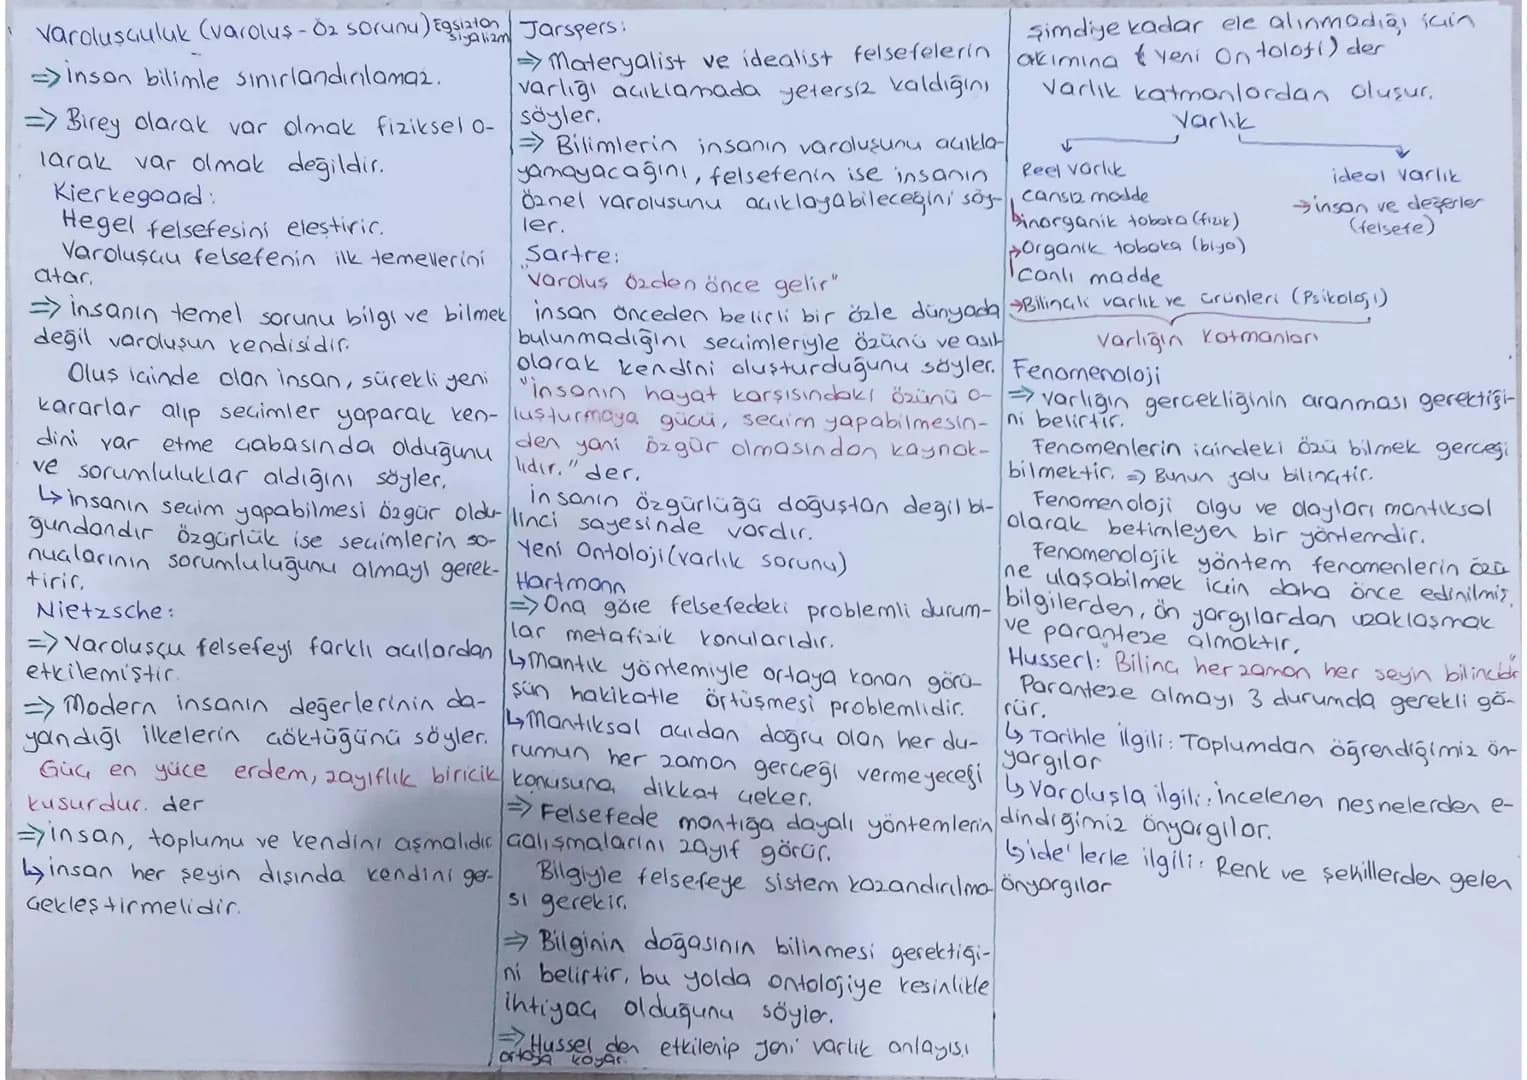 Varoluşçuluk (varoluş-öz sorunu) Egsiztan
siyalizm
⇒ insan bilimle sınırlandırılamaz.
⇒ Birey olarak var olmak fiziksel o-
larak var olmak değildir.
Kierkegaard:
Hegel felsefesini eleştirir.
Varoluşçu felsefenin ilk temellerini
atar.
⇒ insanın temel sorunu bilgi ve bilmek
değil varoluşun kendisidir.
Oluş içinde olan insan, sürekli yeni
kararlar alıp seçimler yaparak ken-
dini var etme çabasında olduğunu
ve sorumluluklar aldığını söyler.
↳ insanın seçim yapabilmesi özgür oldu-
gundandır özgürlük ise seçimlerin so-
nuçlarının sorumluluğunu almayı gerek-
tirir.
Nietzsche:
⇒ Varoluşçu felsefeyi farklı açılardan
etkilemiştir.
⇒ Modern insanın değerlerinin da-
yandığı ilkelerin çöktüğünü söyler.
Güç en yüce erdem, zayıflık biricik
kusurdur. der
⇒ insan, toplumu ve kendini aşmalıdır
↳ insan her şeyin dışında kendini ger-
çekleştirmelidir.
Jarspers:
⇒ Materyalist ve idealist felsefelerin
varlığı açıklamada yetersiz kaldığını
söyler.
⇒ Bilimlerin insanın varoluşunu açıkla-
yamayacağını, felsefenin ise insanın
öznel varolusunu açıklayabileceğini söy-
ler.
Sartre:
"Varoluş özden önce gelir"
insan önceden belirli bir özle dünyada
bulunmadığını seçimleriyle özünü ve asıl
olarak kendini oluşturduğunu söyler.
"insanın hayat karşısındaki özünü o-
luşturmaya gücü, seçim yapabilmesin-
den yani özgür olmasından kaynak-
lıdır." der.
insanın özgürlüğü doğuştan değil bi-
linci sayesinde vardır.
Yeni Ontoloji (varlık sorunu)
Hartmann
⇒ Ona göre felsefedeki problemli durum-
lar metafizik konularıdır.
↳ Mantık yöntemiyle ortaya konan görü-
şün hakikatle örtüşmesi problemlidir.
↳ Mantıksal açıdan doğru olan her du-
rumun her zaman gerçeği vermeyeceği
konusuna dikkat çeker.
⇒ Felsefede mantığa dayalı yöntemlerin
çalışmalarını zayıf görür.
Bilgiyle felsefeye sistem kazandırılma-
sı gerekir.
⇒ Bilginin doğasının bilinmesi gerektiği-
ni belirtir, bu yolda ontolojiye kesinlikle
ihtiyaç olduğunu söyler.
⇒ Hussel den etkilenip yeni varlık anlayışı
ortaya koyar.
şimdiye kadar ele alınmadığı için
akımına (yeni ontoloji) der
Varlık katmanlardan oluşur.
Varlık
Reel varlık
ideal varlık
cansız madde
→ insan ve değerler
inorganik tabaka (fizik)
(felsefe)
→ Organik tabaka (biyo)
canlı madde
→ Bilinçli varlık ve ürünleri (Psikoloji)
varlığın katmanları
Fenomenoloji
⇒ varlığın gerçekliğinin aranması gerektiği-
ni belirtir.
Fenomenlerin içindeki özü bilmek gerçeği
bilmektir. ⇒ Bunun yolu bilinçtir.
Fenomenoloji olgu ve olayları mantıksal
olarak betimleyen bir yöntemdir.
Fenomenolojik yöntem fenomenlerin özü
ne ulaşabilmek için daha önce edinilmiş
bilgilerden, ön yargılardan uzaklaşmak
ve paranteze almaktır.
Husserl: "Bilinç her zaman her şeyin bilincidir"
Paranteze almayı 3 durumda gerekli gö-
rür.
↳ Tarihle ilgili: Toplumdan öğrendiğimiz ön-
yargılar
↳ Varoluşla ilgili: incelenen nesnelerden e-
dindiğimiz önyargılar.
↳ ide'lerle ilgili: Renk ve şekillerden gelen
önyargılar